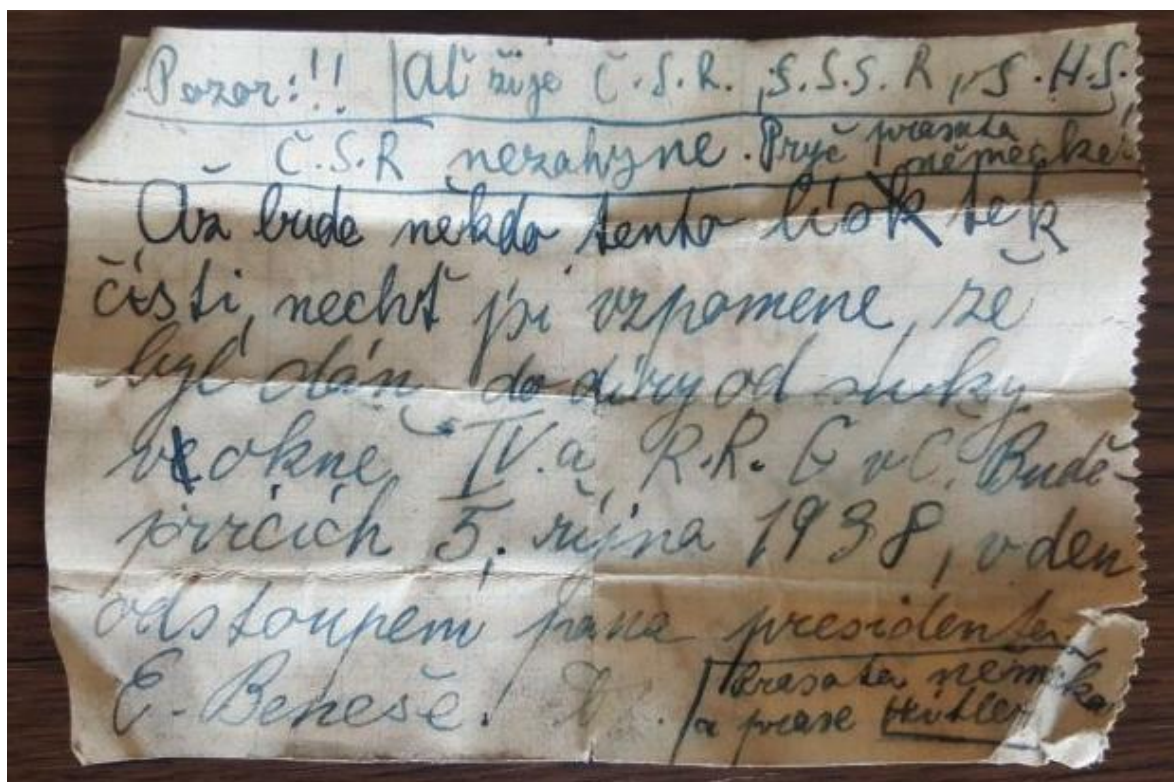 Pozor:!! Ať žije Č.S.R., S.S.S.R, S.H.S.
Č.S.R nezahyne. Pryč prasata
německá
Až bude někdo tento lístek
čísti, nechť si vzpomene, že
byl dán do díry od kliky
v okně IV.a, R.R. G v Č. Budě-
jovicích 5. října 1938, v den
odstoupení pana presidenta
E. Beneše.
Prasata německá
a prase Hitler